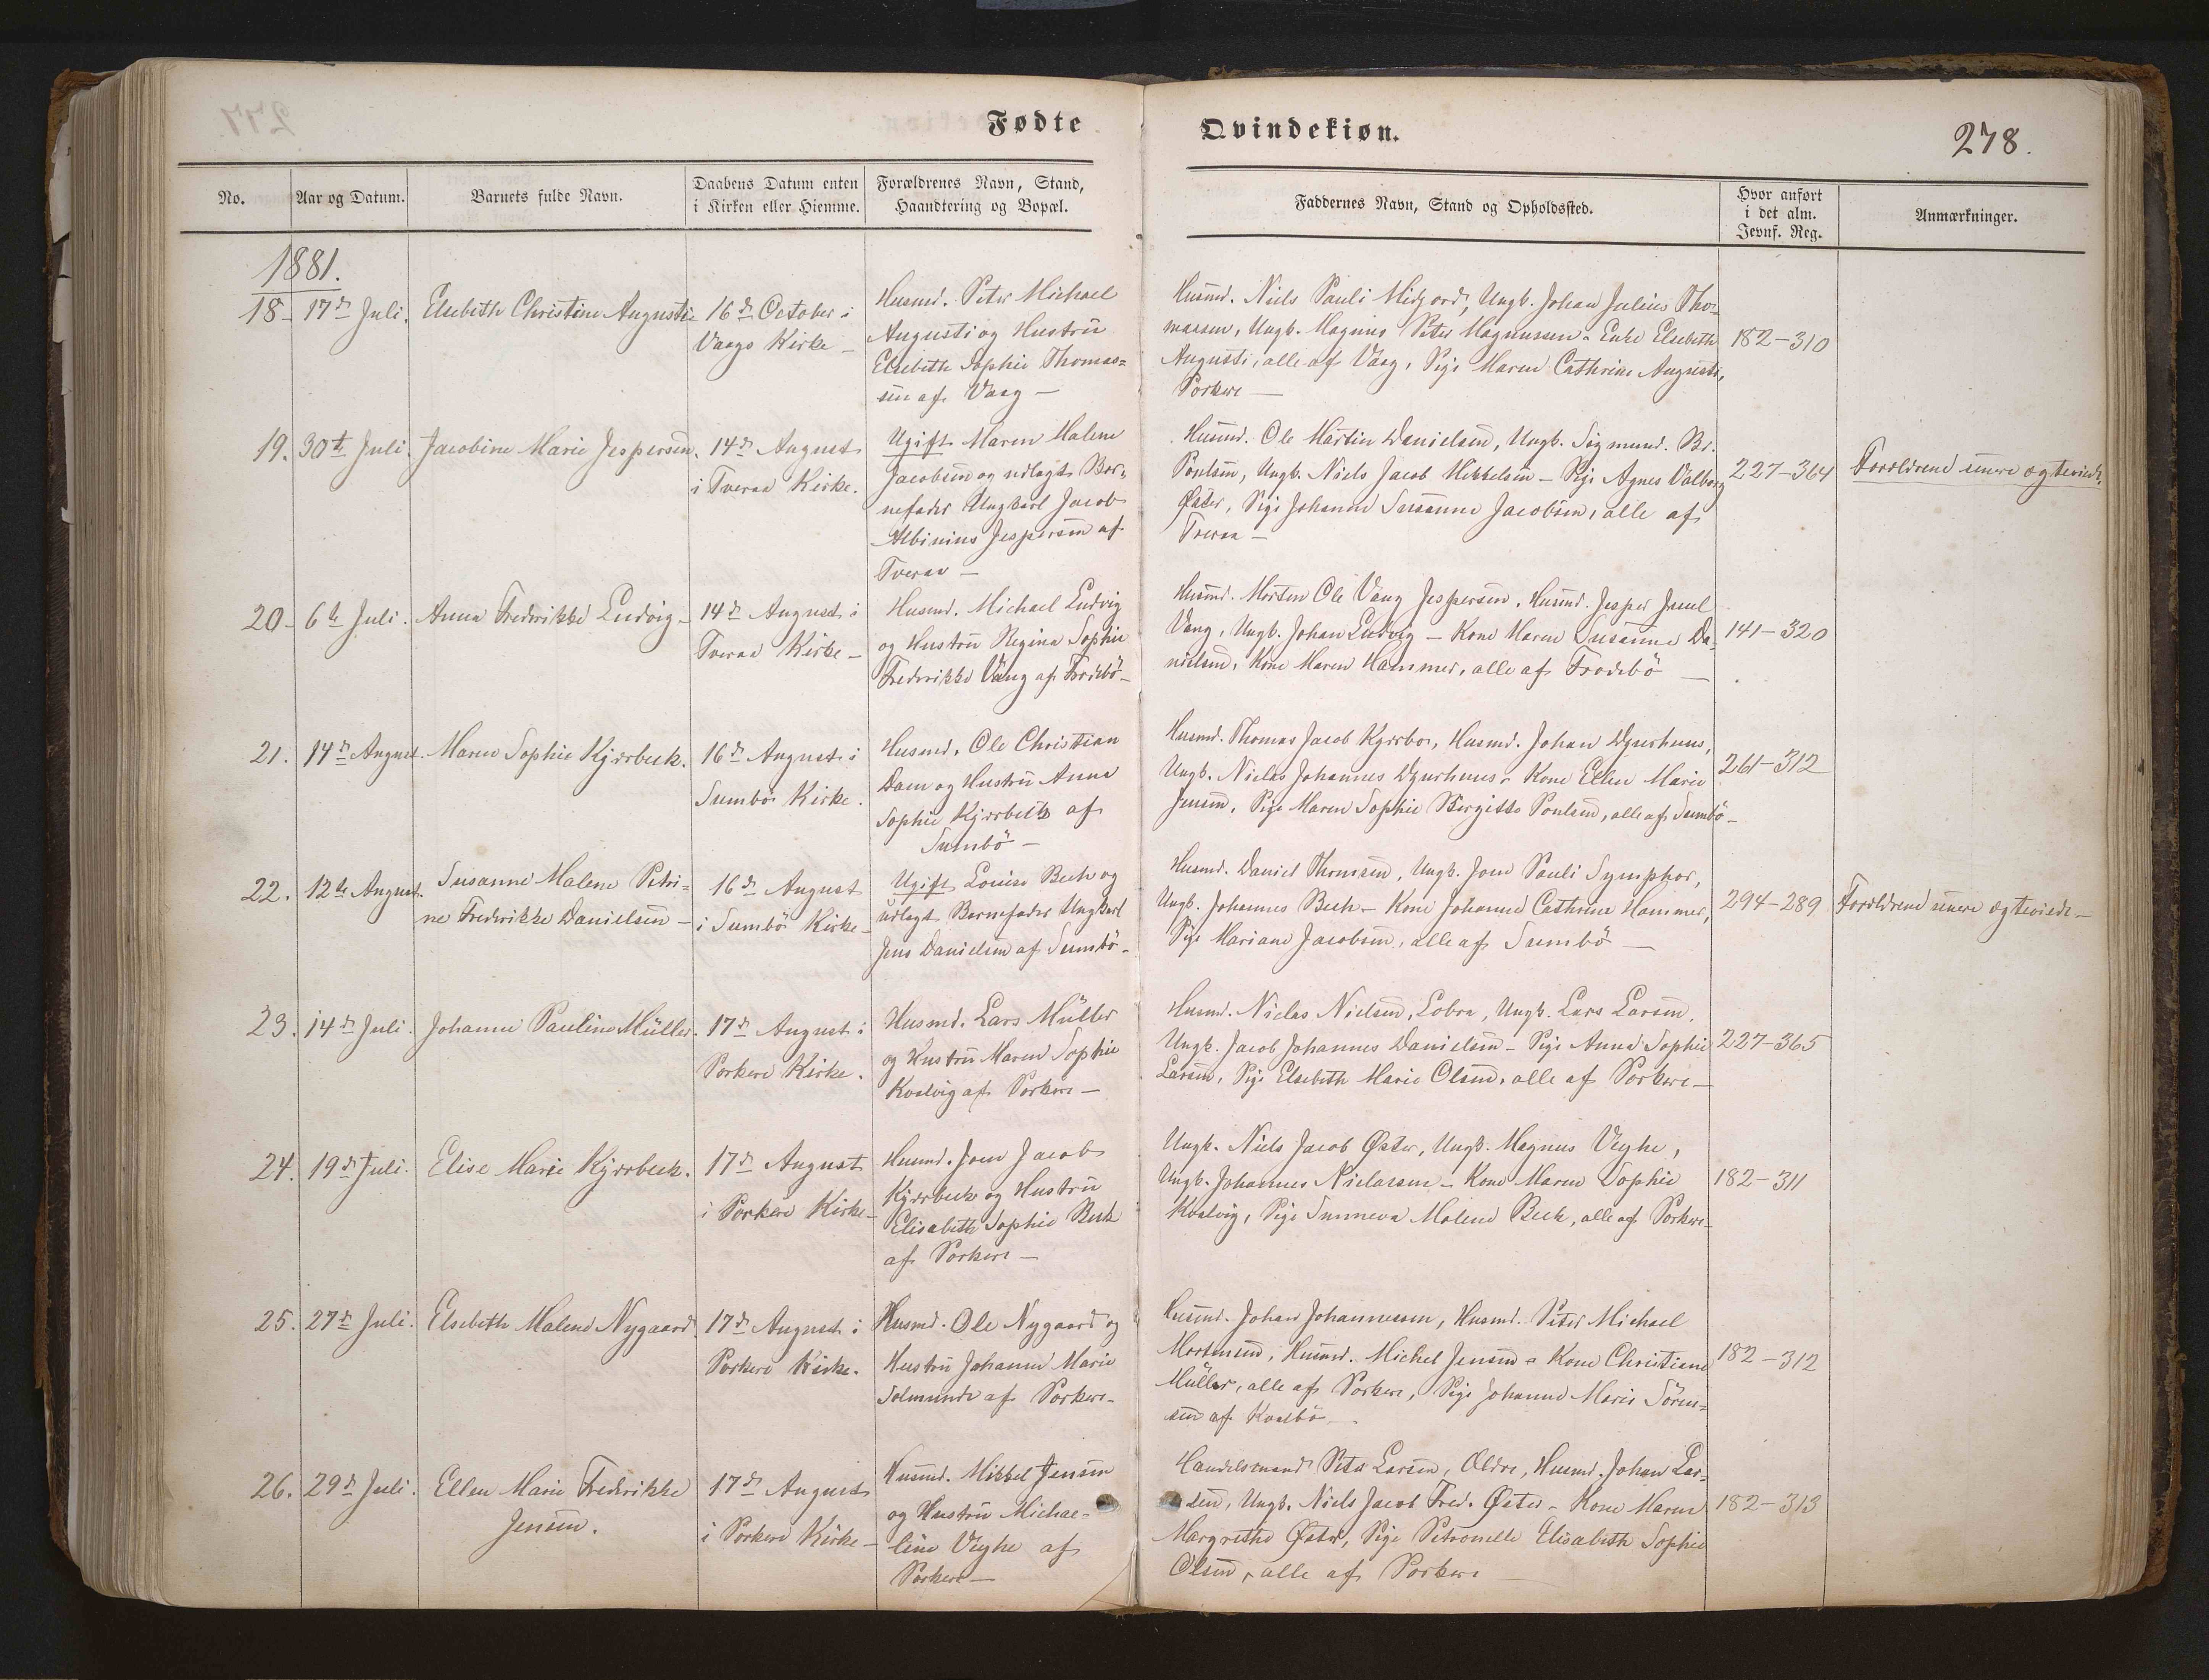 Fødte
Qvindekiøn.
278.
No.
Aar og Datum.
Barnets fulde Navn.
Daabens Datum enten
i Kirken eller Hiemme.
Forældrenes Navn, Stand,
Haandtering og Bopæl.
Faddernes Navn, Stand og Opholdssted.
Hvor anført
i det alm.
Jevnf. Reg.
Anmærkninger.
1881.
18-
17de Juli.
Elsebeth Christine Augusti
16de October i
Vaags Kirke -
Husmd. Peter Michael
Augusti og Hustru
Elsebeth Sophie Thomas=
sen af Vaag -
Husmd. Niels Pauli Midjord, Ungk. Johan Julius Tho=
massen, Ungk. Magnus Peter Magnussen - Enke Elsebeth
Augusti, alle af Vaag, Pige Maren Cathrine Augusti,
Porkere -
182-310
19.
30te Juli.
Jacobine Marie Jespersen.
14de August
i Tveraa Kirke.
Ugift Maren Malene
Jacobsen og udlagt Bar=
nefader Ungkarl Jacob
Albinius Jespersen af
Tveraa -
Husmd. Ole Martin Danielsen, Ungk. Sigmund. Br.
Poulsen, Ungk. Niels Jacob Mikkelsen - Pige Agnes Valborg
Øster, Pige Johanne Susanne Jacobsen, alle af
Tveraa -
227-364
Forældrene senere ægteviede.
20-
6te Juli.
Anna Fredrikke Ludvig -
14de August i
Tveraa Kirke -
Husmd. Michael Ludvig
og Hustru Regina Sophie
Fredrikke Vang af Frodebö -
Husmd. Morten Ole Vang Jespersen, Husmd. Jesper Juul
Vang, Ungk. Johan Ludvig - Kone Maren Susanne Da=
nielsen, Kone Maren Hammer, alle af Frodebö -
141-320
21.
14de August.
Maren Sophie Kjærbeck.
16de August i
Sumbö Kirke.
Husmd. Ole Christian
Dam og Hustru Anna
Sophie Kjærbeck af
Sumbö -
Husmd. Thomas Jacob Kjærbo, Husmd. Johan Dyurhuus,
Ungk. Niclas Johannes Dyurhuus - Kone Ellen Marie
Jensen, Pige Maren Sophie Birgitte Poulsen, alle af Sumbö -
261-312
22.
12te August.
Susanne Malene Petri=
ne Fredrikke Danielsen -
16de August
i Sumbö Kirke -
Ugift Louise Bech og
udlagt Barnefader Ungkarl
Jens Danielsen af Sumbö -
Husmd. Daniel Thomsen, Ungk. Joen Pauli Symphor,
Ungk. Johannes Bech - Kone Johanne Cathrine Hammer,
Pige Mariane Jacobsen, alle af Sumbö -
294-289
Forældrene senere ægteviede -
23.
14de Juli.
Johanne Pauline Müller.
17de August i
Porkere Kirke.
Husmd. Lars Müller
og Hustru Maren Sophie
Kvalvig af Porkere -
Husmd. Niclas Nielsen, Lobra, Ungk. Lars Larsen,
Ungk. Jacob Johannes Danielsen - Pige Anne Sophie
Larsen, Pige Elsebeth Marie Olsen, alle af Porkere -
227-365
24.
19de Juli.
Elise Marie Kjærbeck.
17de August
i Porkere Kirke -
Husmd. Joen Jacob
Kjærbeck og Hustru
Elisabeth Sophie Bech
af Porkere -
Ungk. Niels Jacob Øster, Ungk. Magnus Veyhe,
Ungk. Johannes Niclassen - Kone Maren Sophie
Kvalvig, Pige Sunneva Malene Bech, alle af Porkere -
182-311
25.
27de Juli.
Elsebeth Malene Nygaard
17de August i
Porkere Kirke.
Husmd. Ole Nygaard og
Hustru Johanne Marie
Solmunde af Porkere -
Husmd. Johan Johannessen, Husmd. Peter Michael
Mortensen, Husmd. Michel Jensen - Kone Christiane
Müller, alle af Porkere, Pige Johanne Marie Sören=
sen af Kvalbö -
182-312
26.
29de Juli.
Ellen Marie Fredrikke
Jensen.
17de August
i Porkere Kirke -
Husmd. Mikkel Jensen
og Hustru Michae=
line Veyhe af
Porkere -
Handelsmand Peter Larsen, Ældre, Husmd. Johan Lar=
sen, Ungk. Niels Jacob Fred. Øster - Kone Maren
Margrethe Øster, Pige Petronelle Elisabeth Sophie
Olsen, alle af Porkere -
182-313